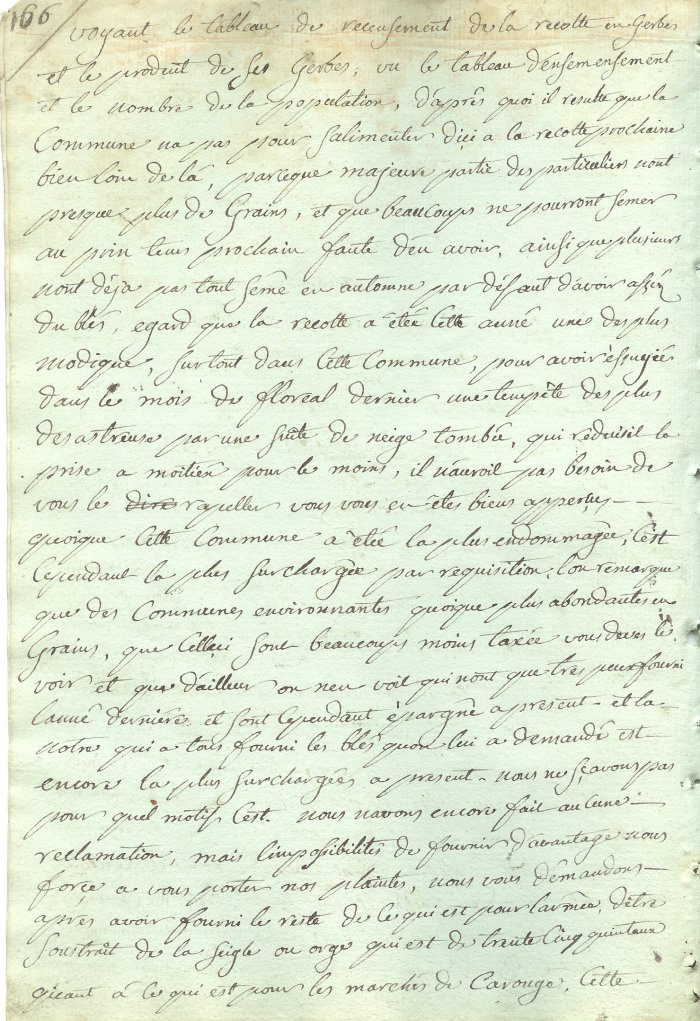 166
voyant le tableau de recensement de la recolte en Gerbes
et le produit de Ses Gerbes, vu le tableau d'ensemensement
et le nombre de la population, d'après quoi il resulte que la
Commune na pas pour Salimenter d'içi a la recolte prochaine
bien loin de là, parceque majeure partie des particuliers nont
presque plus de Grains, et que beaucoups ne pourront Semer
au prin tems prochain faute d'en avoir, ainsi que plusieurs
nont déja pas tout Semé en automne par défaut d'avoir
du blés, egard que la recolte a étée Cette anné une des plus
modique, Surtout dans Cette Commune, pour avoir èssuyée
dans le mois de floreal dernier une tempête des plus
desastreuse par une Suite de neige tombée, qui réduisit la
prise a moitien pour le moins, il n'auroit pas besoin de
vous le dire rapeller vous vous en êtes biens apperçus
quoique Cette Commune a étée la plus endommagée, C'est
Cependant la plus Surchargée par requisition, l'on remarque
que des Communes environnantes quoique plus abondantes en
Grains, que Celleçi Sont beaucoups moins taxée vous deves le
voir et que d'ailleur on neu voit qui nont que très peux fourni
lanné derniére et Sont Cependant épargné apresent et la
notre qui a tous fourni les blés quon lui a demandé est
encore la plus Surchargées a present. nous ne Sçavons pas
pour quel motif C'est. nous navons encore fait aucune
reclamation, mais l'impossibilités de fournir d'avantage nous
força a vous porter nos plaintes, nous vous démandons
après avoir fourni le reste de Ce qui est pour larmée, d'être
Soustrait de la Seigle ou orge qui est de trente Cinq quintaux
qicant á Ce qui est pour les marchés de Carouge, Cette